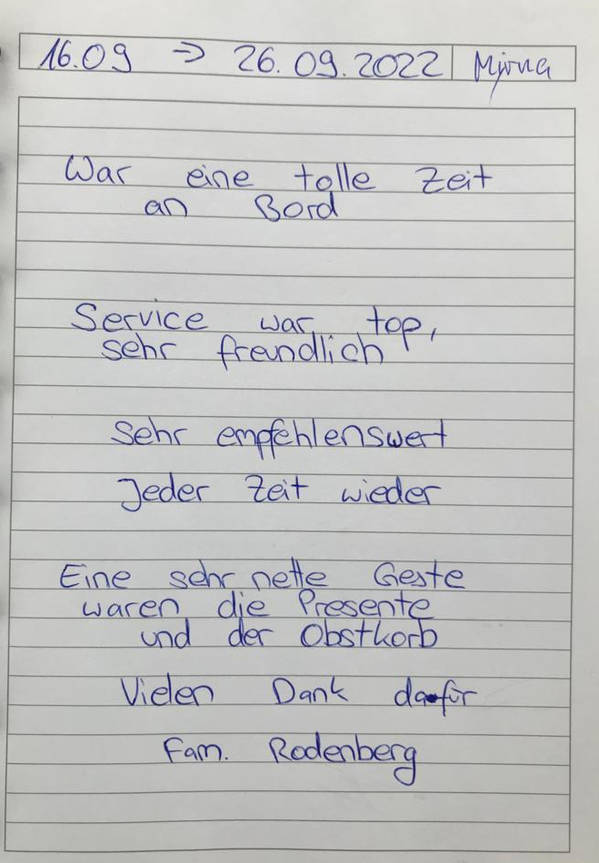 16.09 → 26.09.2022 Mirna
War eine tolle Zeit
an Bord
Service war top,
sehr freundlich
Sehr empfehlenswert
Jeder Zeit wieder
Eine sehr nette Geste
waren die Presente
und der Obstkorb
Vielen Dank dafür
Fam. Rodenberg